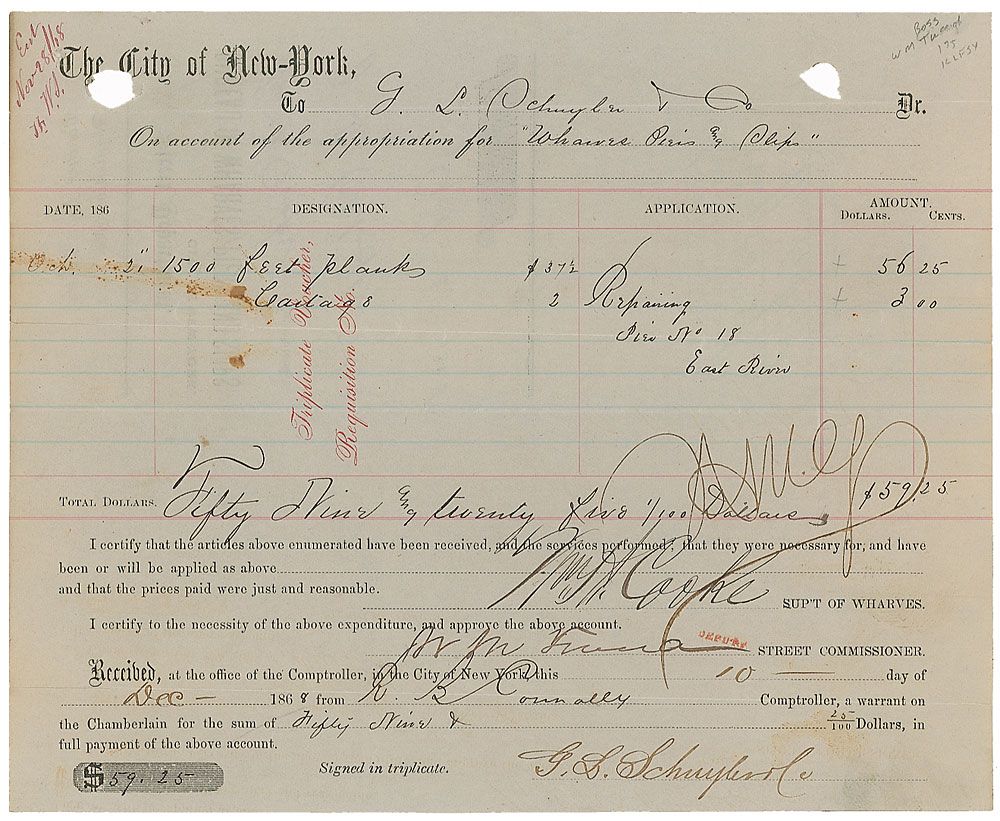 Ent
Nov 28/68
Boss
Wm Tweed
175
The City of New-York,
To G. L. Schuyler & Co Dr.
On account of the appropriation for "Wharves Piers & Slips"
DATE, 186 DESIGNATION. APPLICATION. AMOUNT.
DOLLARS. CENTS.
Oct. 21 1500 feet plank $ 37½ Repairing 56 25
Cartage 2 3 00
Pier No 18
East River
Triplicate Voucher,
Requisition No.
TOTAL DOLLARS. Fifty Nine & twenty five 1/100 Dollars $59.25
I certify that the articles above enumerated have been received, and the services performed; that they were necessary for, and have
been or will be applied as above
and that the prices paid were just and reasonable.
Cooke SUP'T OF WHARVES.
I certify to the necessity of the above expenditure, and approve the above account.
Wm Tweed DEPUTY STREET COMMISSIONER.
Received, at the office of the Comptroller, in the City of New York, this 10 day of
Dec 1868 from R. B. Connolly Comptroller, a warrant on
the Chamberlain for the sum of Fifty Nine & 25/100 Dollars, in
full payment of the above account.
$ 59.25 Signed in triplicate. G. L. Schuyler & Co